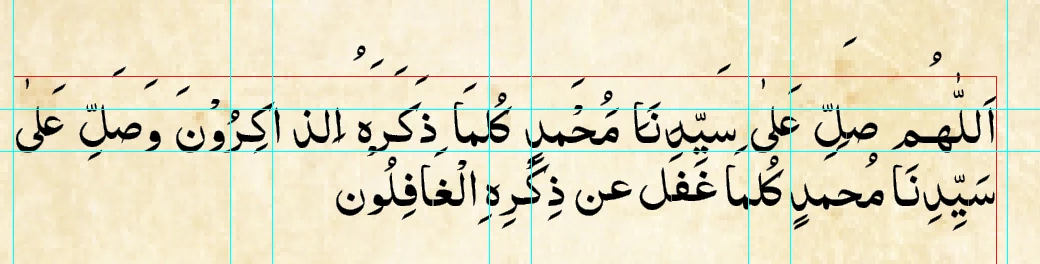 اَللّٰهُم صَلِّ عَلٰى سَيِّدِنَا مُحَمدٍ كُلمَا ذَكَرَهُ الذ اكِرُوْنَ وَصَلِّ عَلىٰ
سَيِّدِنَا مُحمدٍ كُلما غَفَل عن ذِكْرِهِ الْغَافِلُون